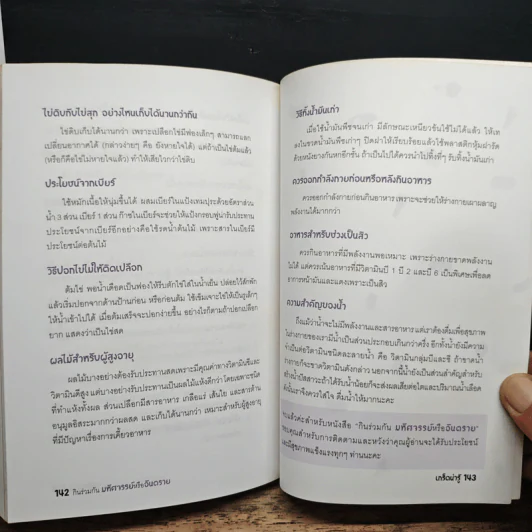 ไข่ดิบกับไข่สุก อย่างไหนเก็บได้นานกว่ากัน
ไข่ดิบเก็บได้นานกว่า เพราะเปลือกไข่มีฟองเล็กๆ สามารถแลก
เปลี่ยนอากาศได้ (กล่าวง่ายๆ คือ ยังหายใจได้) แต่ถ้าเป็นไข่ต้มแล้ว
(หรือก็คือไข่ไม่หายใจแล้ว) ทำให้เสียไวกว่าไข่ดิบ
ประโยชน์จากเบียร์
ใช้หมักเนื้อให้นุ่มขึ้นได้ ผสมเบียร์ในแป้งเทมปุระด้วยอัตราส่วน
น้ำ 3 ส่วน เบียร์ 1 ส่วน ก๊าซในเบียร์จะช่วยให้แป้งกรอบฟูน่ารับประทาน
ประโยชน์จากเบียร์อีกอย่างคือใช้รดน้ำต้นไม้ เพราะสารในเบียร์มี
ประโยชน์ต่อต้นไม้
วิธีปอกไข่ไม่ให้ติดเปลือก
ต้มไข่ พอน้ำเดือดเป็นฟองให้รีบตักไข่ใส่ในน้ำเย็น ปล่อยไว้สักพัก
แล้วเริ่มปอกจากด้านป้านก่อน หรือก่อนต้ม ใช้เข็มเจาะไข่ให้เป็นรูเล็กๆ
ให้น้ำเข้าไปได้ เมื่อต้มเสร็จจะปอกง่ายขึ้น อย่างไรก็ตามถ้าปอกเปลือก
ยาก แสดงว่าเป็นไข่สด
ผลไม้สำหรับผู้สูงอายุ
ผลไม้บางอย่างต้องรับประทานสดเพราะมีคุณค่าทางวิตามินซีและ
วิตามินดีสูง แต่บางอย่างรับประทานเป็นผลไม้แห้งดีกว่า โดยเฉพาะชนิด
ที่ทำแห้งทั้งผล ส่วนเปลือกมีสารอาหาร เกลือแร่ เส้นใย และสารต้าน
อนุมูลอิสระมากกว่าผลสด และเก็บได้นานกว่า เหมาะสำหรับผู้สูงอายุ
ที่มีปัญหาเรื่องการเคี้ยวอาหาร
142 กินร่วมกัน มหัศจรรย์หรืออันตราย
วิธีทิ้งน้ำมันเก่า
เมื่อใช้น้ำมันพืชจนเก่า มีลักษณะเหนียวข้นใช้ไม่ได้แล้ว ให้เท
ลงในขวดน้ำมันพืชเก่าๆ ปิดฝาให้เรียบร้อยแล้วใช้พลาสติกหุ้มฝารัด
ด้วยหนังยางกันหกอีกชั้น ถ้าเป็นไปได้ควรนำไปทิ้งที่ๆ รับทิ้งน้ำมันเก่า
ควรออกกำลังกายก่อนหรือหลังกินอาหาร
ควรออกกำลังกายก่อนกินอาหาร เพราะจะช่วยให้ร่างกายเผาผลาญ
พลังงานได้มากกว่า
อาหารสำหรับช่วงเป็นสิว
ควรกินอาหารที่มีพลังงานพอเหมาะ เพราะร่างกายขาดพลังงาน
ไม่ได้ แต่ควรเน้นอาหารที่มีวิตามินบี 1 บี 2 และบี 6 เป็นพิเศษเพื่อลด
อาการหน้ามันและแดงเพราะเป็นสิว
ความสำคัญของน้ำ
ถึงแม้ว่าน้ำจะไม่มีพลังงานและสารอาหาร แต่เราต้องดื่มเพื่อสุขภาพ
ในร่างกายของเรามีน้ำเป็นส่วนประกอบเกินกว่าครึ่ง อีกทั้งน้ำยังมีความ
จำเป็นต่อวิตามินชนิดละลายน้ำ คือ วิตามินกลุ่มบีและซี ถ้าขาดน้ำ
กายก็จะขาดวิตามินดังกล่าว นอกจากนี้น้ำยังเป็นส่วนสำคัญสำหรับ
น้ำปัสสาวะถ้าได้รับน้ำน้อยก็จะส่งผลเสียต่อไตและปริมาณน้ำเลือด
ดังนั้นเราจึงควรใส่ใจ ดื่มน้ำให้มากนะคะ
แล้วค่ะสำหรับหนังสือ "กินร่วมกัน มหัศจรรย์หรืออันตราย"
คุณสำหรับการติดตามและหวังว่าคุณผู้อ่านจะได้รับประโยชน์
และมีสุขภาพแข็งแรงทุกๆ ท่านนะคะ
เกร็ดน่ารู้ 143